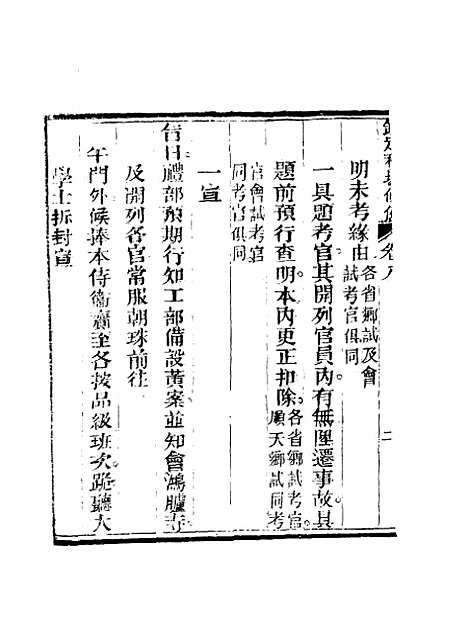 欽定科場條例 卷八 二
明未考緣由各省鄉試及會
試考官俱同
一具題考官其開列官員內有無陞遷事故具
題前預行查明本內更正扣除各省鄉試考官
順天鄉試同考
官會試考官
同考官俱同
一宣
旨日禮部預期行知工部備設黃案並知會鴻臚寺
及開列各官常服朝珠前往
午門外候捧本侍衛齎至各按品級班次跪聽大
學士拆封宣